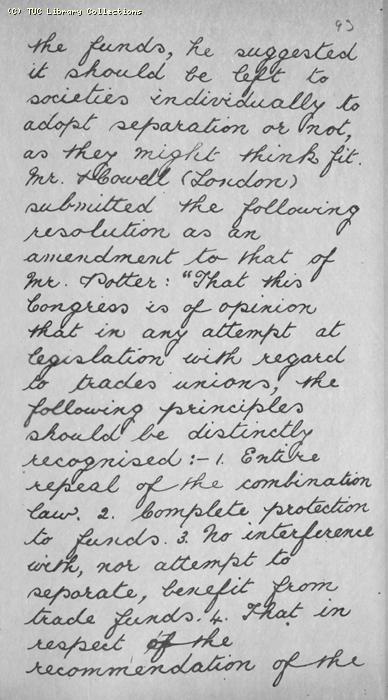 (C) TUC Library Collections
93
the funds, he suggested
it should be left to
societies individually to
adopt separation or not,
as they might think fit.
Mr. Howell (London)
submitted the following
resolution as an
amendment to that of
Mr. Potter: "That this
Congress is of opinion
that in any attempt at
legislation with regard
to trades unions, the
following principles
should be distinctly
recognised:- 1. Entire
repeal of the combination
law. 2. Complete protection
to funds. 3. No interference
with, nor attempt to
separate, benefit from
trade funds. 4. That in
respect of the
recommendation of the